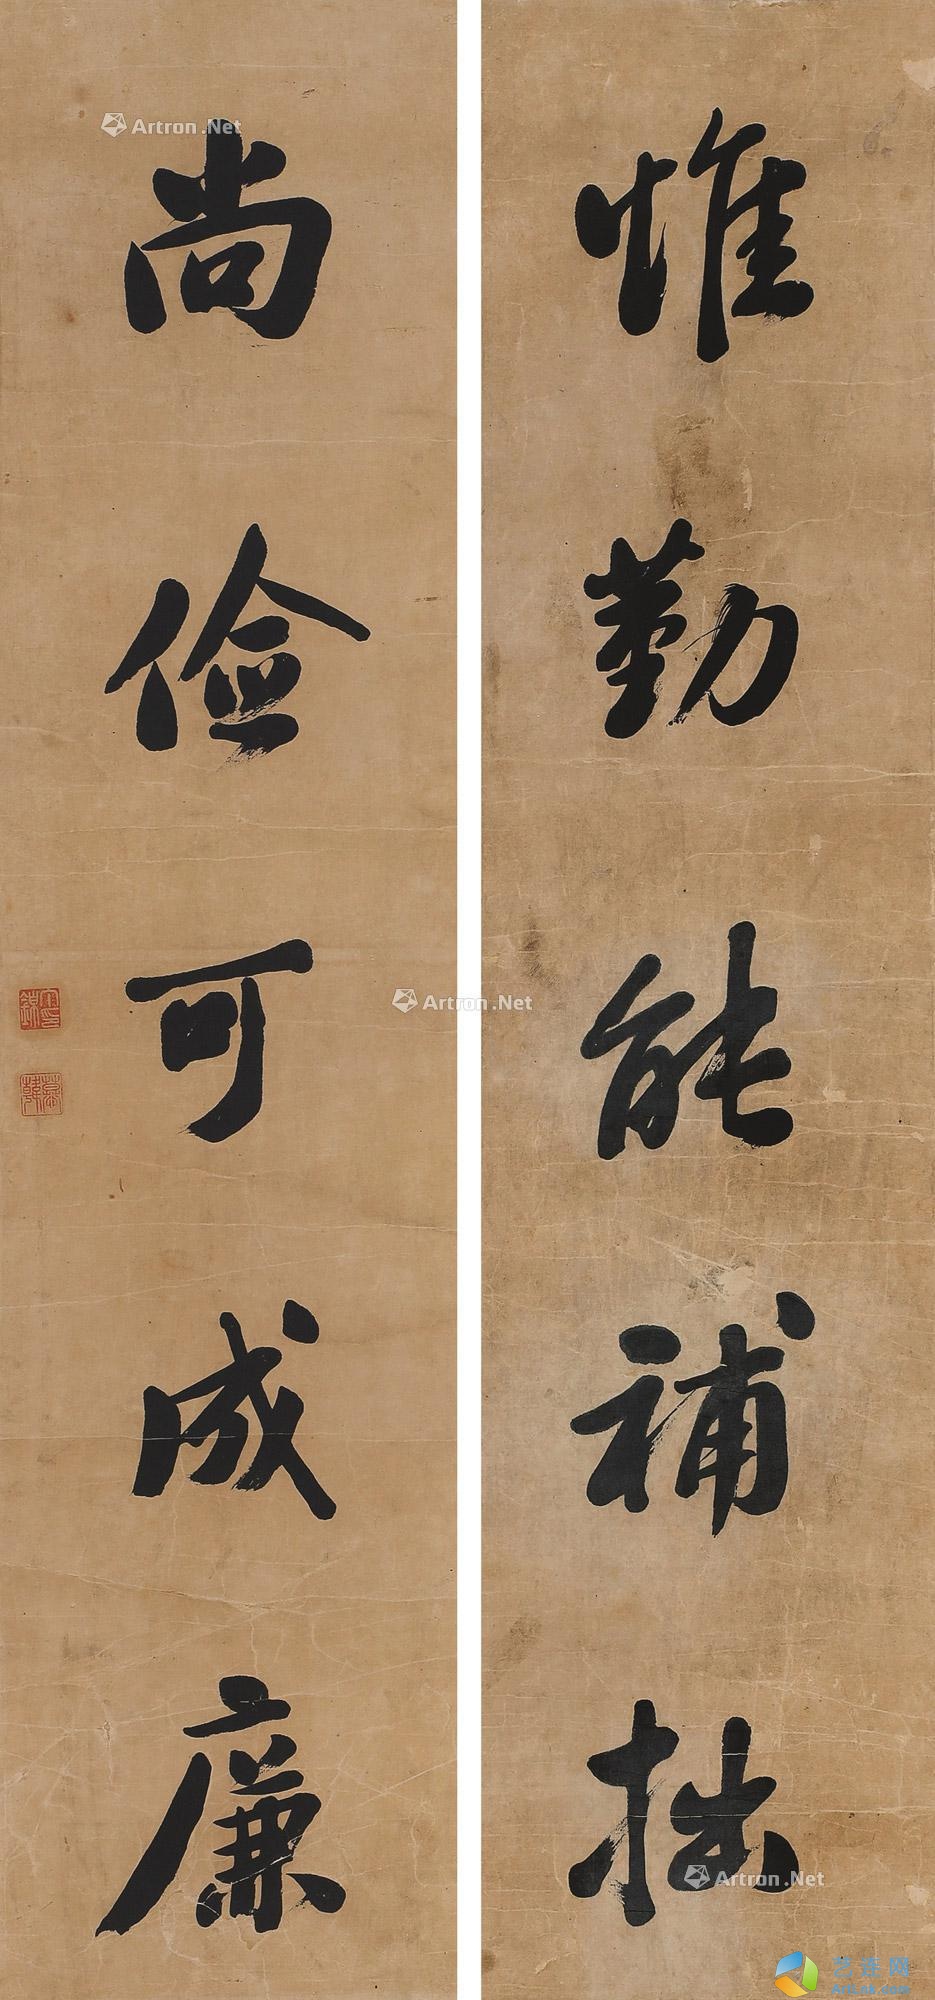 惟勤能補拙
尚儉可成廉
Artron.Net
Artron.Net
Artron.Net
艺连网